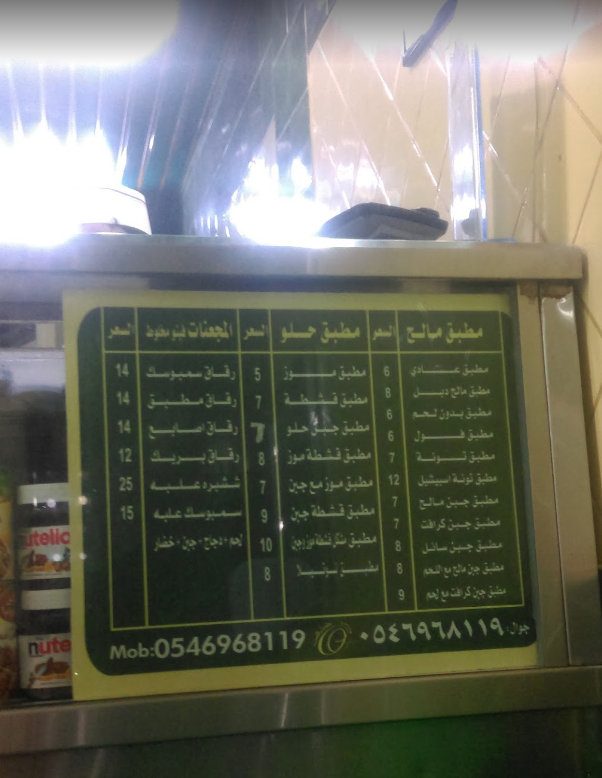 مطبق مالح السعر
مطبق عادي 6
مطبق مالح دبل 8
مطبق بدون لحم 6
مطبق فول 6
مطبق تونة 7
مطبق تونة اسبيشل 12
مطبق جبن مالح 7
مطبق جبن كرافت 7
مطبق جبن سائل 8
مطبق جبن مالح مع اللحم 8
مطبق جبن كرافت مع لحم 9
مطبق حلو السعر
مطبق موز 5
مطبق قشطة 7
مطبق جبن حلو 7
مطبق قشطة موز 8
مطبق موز مع جبن 7
مطبق قشطة جبن 9
مطبق مشكل قشطة موز جبن 10
مطبق نوتيلا 8
المعجنات السعر
رقاق سمبوسك 14
رقاق مطبق 14
رقاق اصابع 14
رقاق بريك 12
ششبره علبه 25
سمبوسك علبه 15
لحم - دجاج - جبن - خضار
جوال: ٠٥٤٦٩٦٨١١٩ Mob:0546968119
nutella
nute